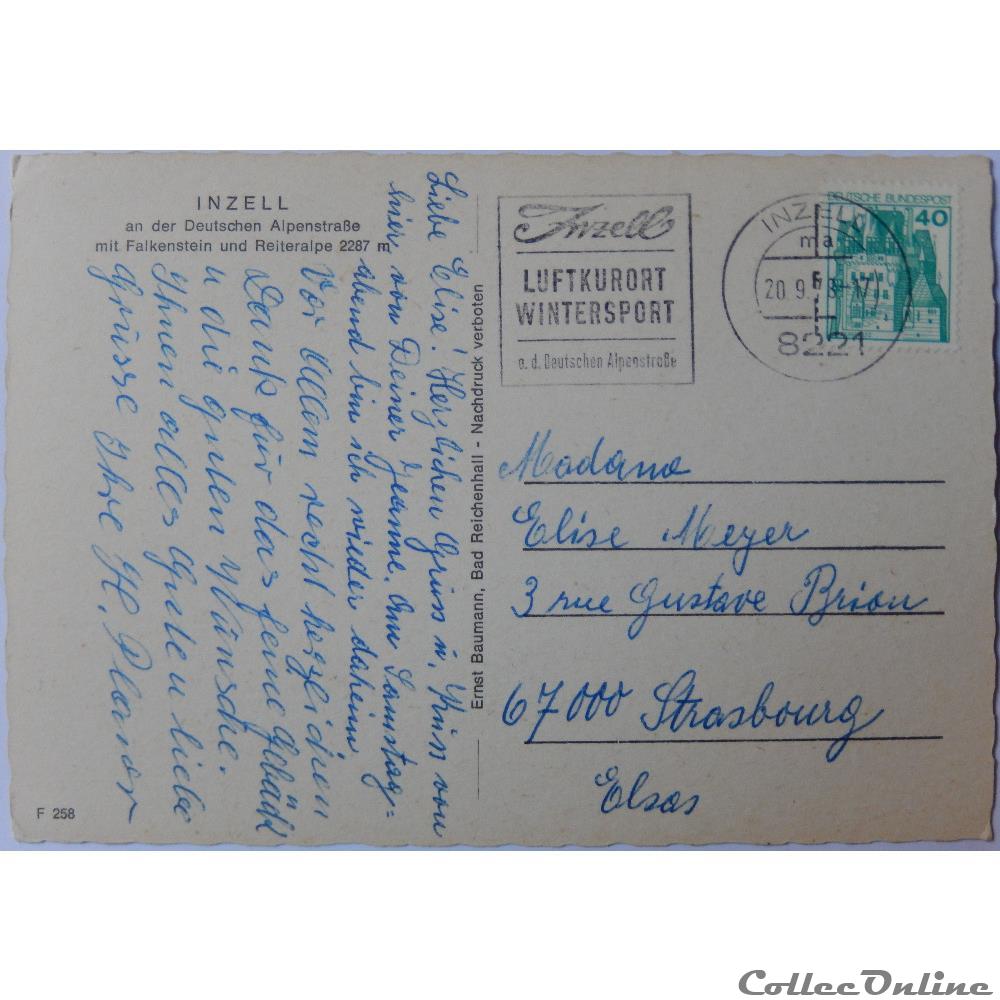 INZELL
an der Deutschen Alpenstraße
mit Falkenstein und Reiteralpe 2287 m
Liebe Elise! Herzlichen Gruss u. Kuss von
hier von Deiner Jeanne. Am Samstag-
abend bin ich wieder daheim
Vor Allem recht herzlichen
Dank für das feine Gebäck
u die guten Wünsche.
Ihnen alles Gute u liebe
Grüsse Ihre H.
F 258
Ernst Baumann, Bad Reichenhall - Nachdruck verboten
Inzell
LUFTKURORT
WINTERSPORT
a. d. Deutschen Alpenstraße
INZELL
ma
20.9. 8-17
8221
DEUTSCHE BUNDESPOST
40
Madame
Elise Meyer
3 rue Gustave Brion
67000 Strasbourg
Elsas
CollecOnline